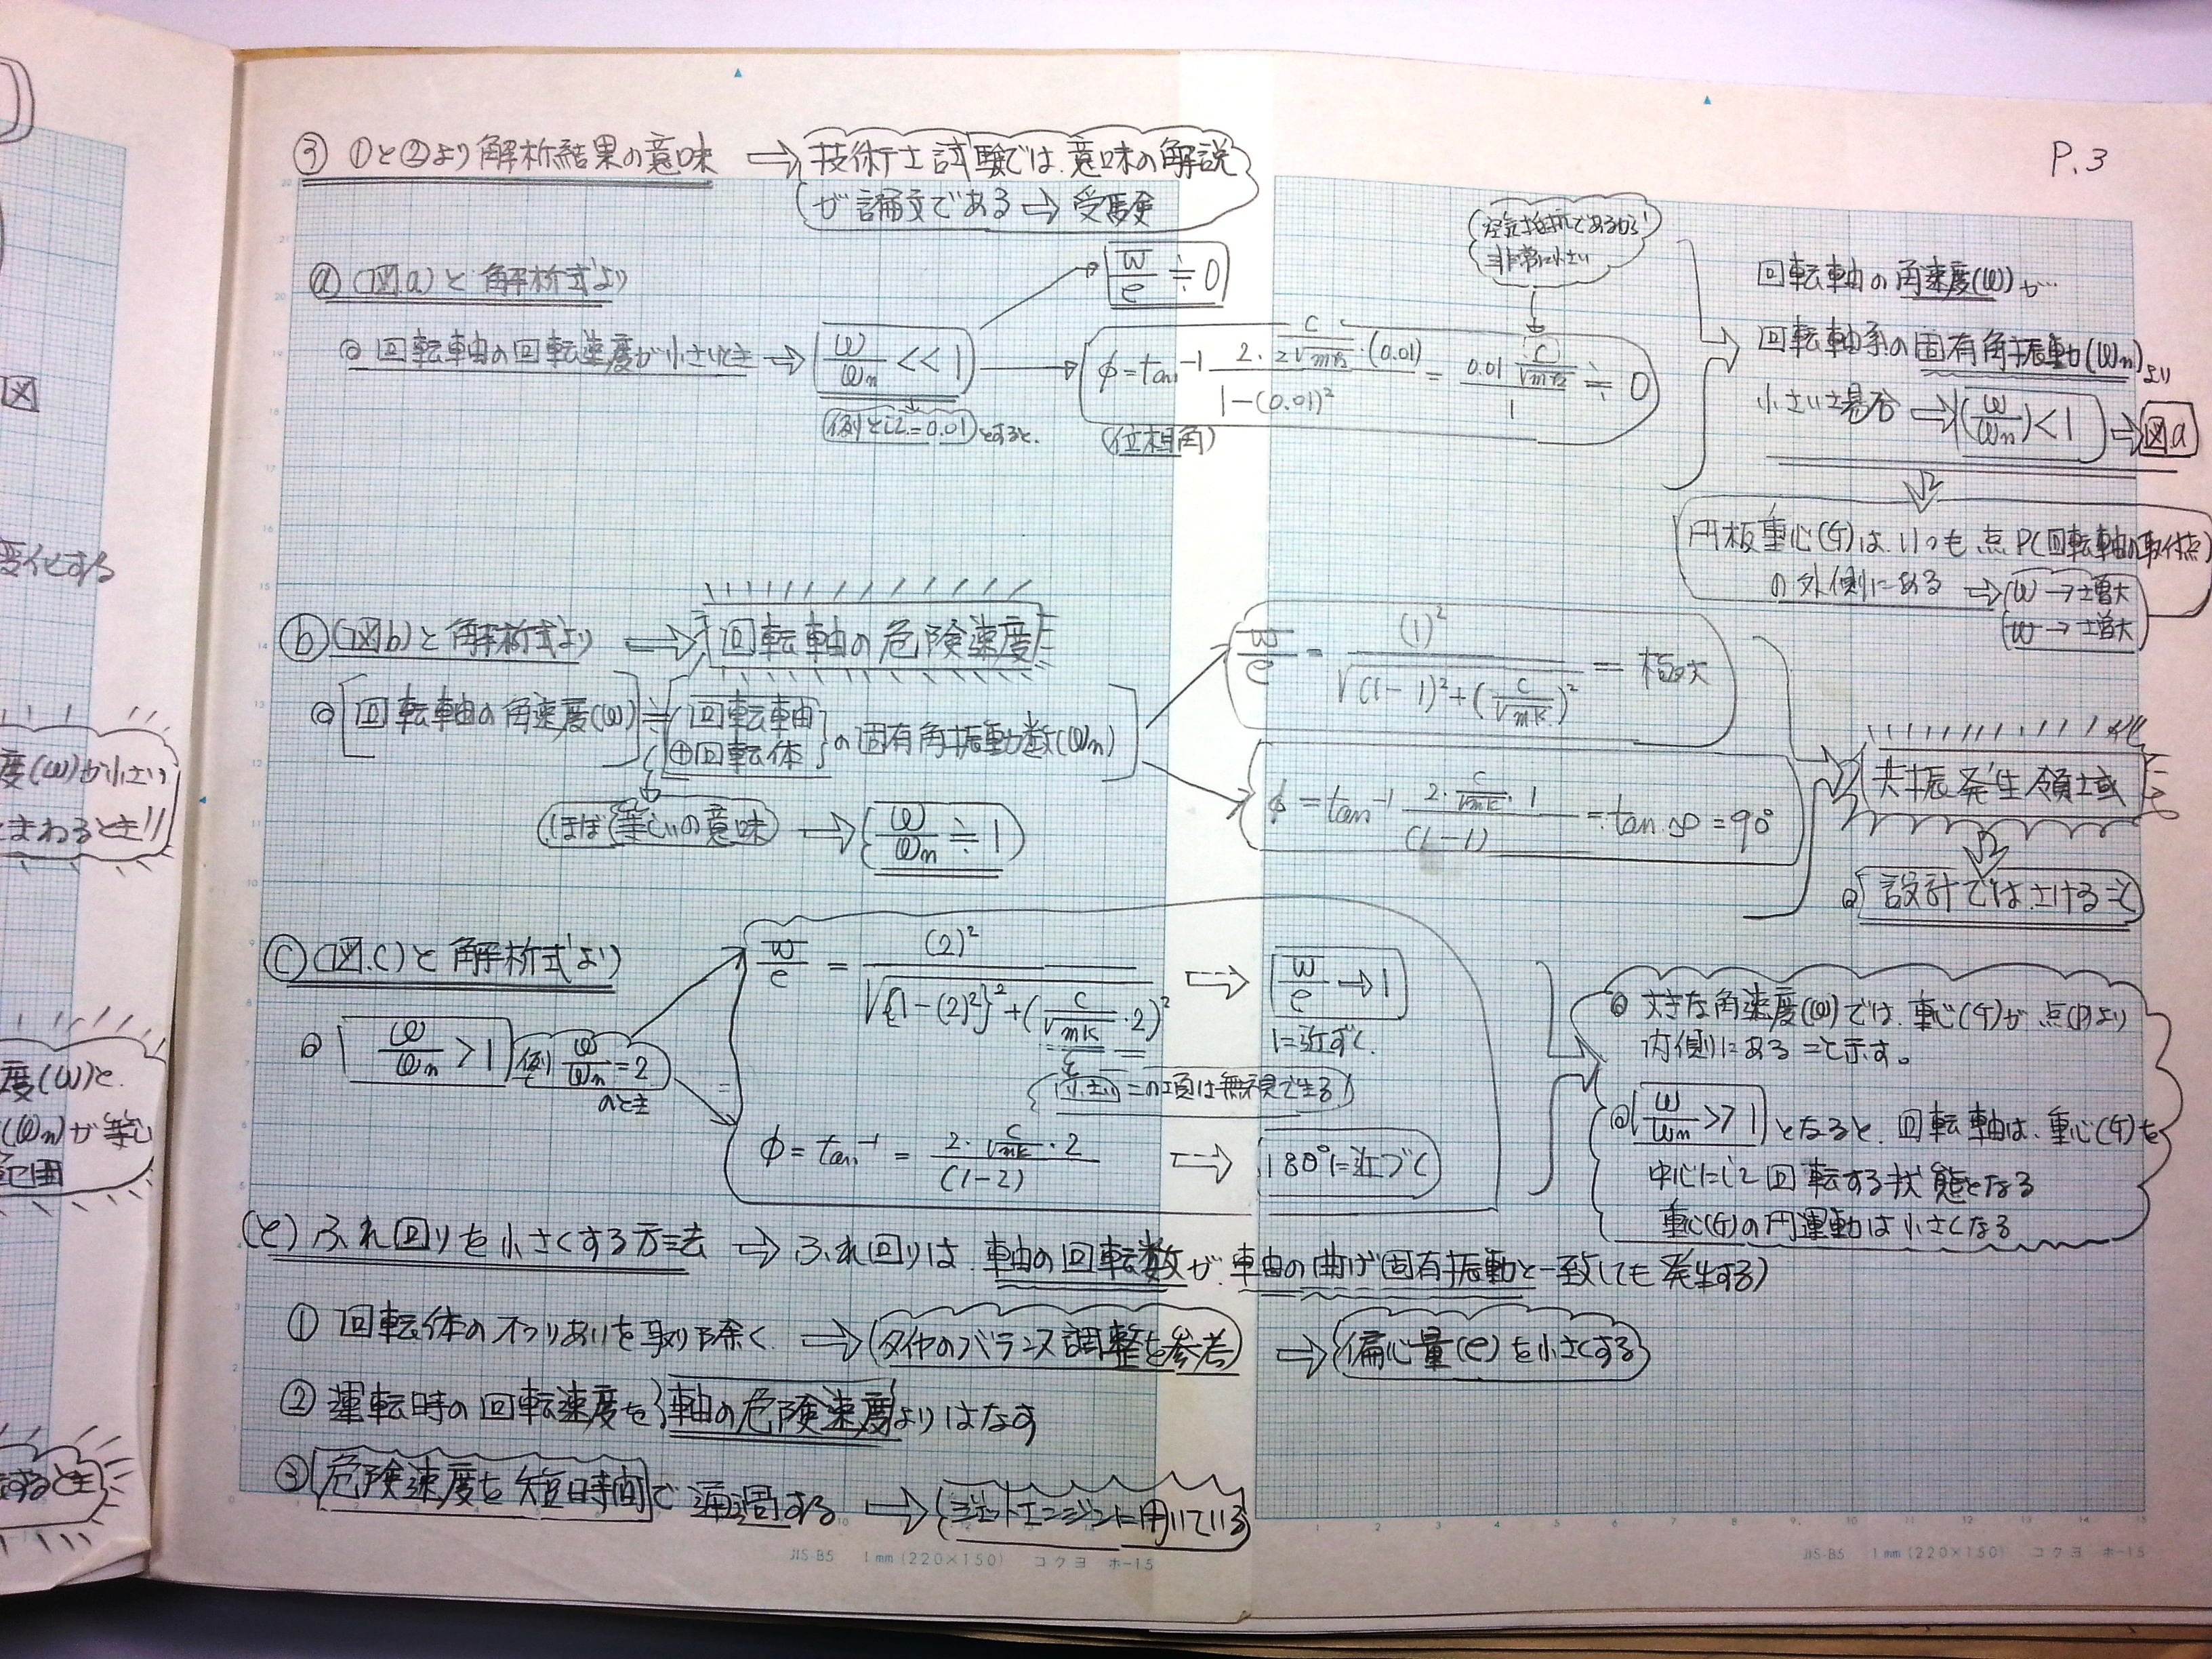 P.3
③ ①と②より解析結果の意味 ⇨ 技術士試験では、意味の解説
が論文である ⇨ 受験
ⓐ (図.a)と解析式より
◎ 回転軸の回転速度が小さいとき ⇨ ω/ωn << 1
例として=0.01とすると、
w/e ≒ 0
空気抵抗であるから
非常に小さい
φ = tan⁻¹ 2・c/2√mk・(0.01) / 1-(0.01)² = 0.01 c/√mk / 1 ≒ 0
(位相角)
回転軸の角速度(ω)が…
回転軸系の固有角振動(ωn)より
小さい場合 ⇨ (ω/ωn) < 1 ⇨ 図.a
円板重心(G)は、いつも点P(回転軸の取付点)
の外側にある ⇨ (ω → 増大
(w → 増大)
ⓑ (図b)と解析式より ⇨ 回転軸の危険速度
◎ [回転軸の角速度(ω)] ≒ [回転軸
⊕回転体] の固有角振動数(ωn)
ほぼ等しいの意味 → ω/ωn ≒ 1
w/e = (1)² / √(1-1)²+(c/√mk)² = 極大
φ = tan⁻¹ 2・c/√mk・1 / (1-1) = tan.∞ = 90°
共振発生領域
◎ 設計ではさけること
ⓒ (図.c)と解析式より
◎ ω/ωn > 1 例 ω/ωn = 2
のとき
w/e = (2)² / √{1-(2)²}²+(c/√mk・2)² ⇨ w/e → 1
1に近ずく.
小さい =の項は無視できる
φ = tan⁻¹ = 2・c/√mk・2 / (1-2) ⇨ 180°に近づく
◎ 大きな角速度(ω)では、重心(G)が点(P)より
内側にあること示す。
◎ ω/ωn >> 1 となると、回転軸は、重心(G)を
中心にして回転する状態となる
重心(G)の円運動は小さくなる
(と) ふれ回りを小さくする方法 ⇨ ふれ回りは、車由の回転数が、車由の曲げ固有振動と一致しても発生する)
① 回転体の不つりあいを取り除く、 ⇨ (タイヤのバランス調整を参考) ⇨ (偏心量(e)を小さくする)
② 運転時の回転速度を軸の危険速度よりはなす
③ 危険速度を短時間で通過する ⇨ ジェットエンジンに用いている
JIS-B5 1mm (220×150) コクヨ ホ-15
JIS-B5 1mm (220×150) コクヨ ホ-15
図
変化する
度(ω)が小さい
とまわるとき!!
度(ω)と.
(ωn)が等しい
範囲
するとき